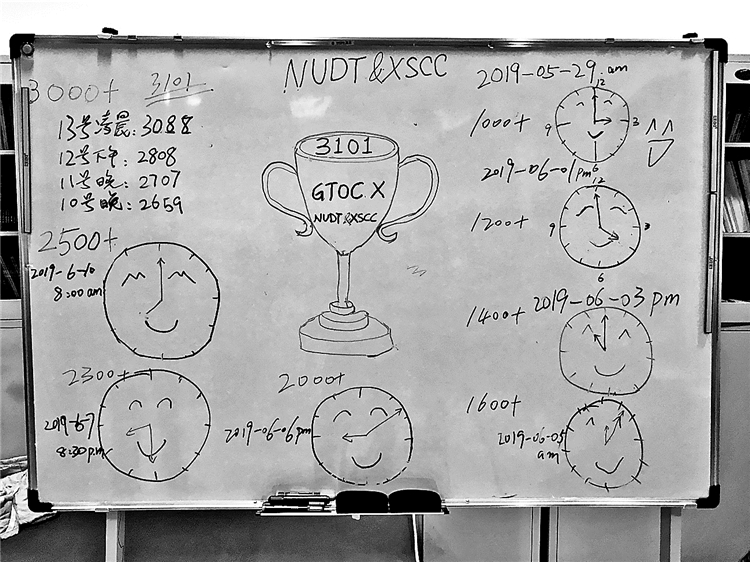 NUDT&XSCC
3000+ 3101
13号凌晨: 3088
12号下午: 2808
11号晚: 2707
10号晚: 2659
2500+
2019-6-10
8:00am
2300+
2019-6-7
8:30pm
3101
GTOC X
NUDT&XSCC
2000+
2019-06-06pm
2019-05-29 am
1000+
12
9
3
6
2019-06-01pm
1200+
12
9
3
6
1400+ 2019-06-03 pm
1600+
2019-06-05
am